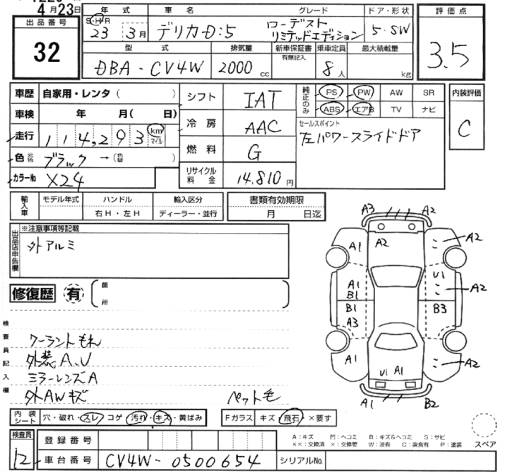 4月23日
出品番号
32
年式 車名 グレード ドア・形状
S・H・R
23年 3月 デリカD:5 ローデスト リミテッドエディション 5・SW
評価点
3.5
型式 排気量 新車保証書 有無記入 乗車定員 最大積載量
DBA-CV4W 2000cc 8人 kg
車歴 自家用・レンタ( )
車検 年 月( 日)
走行 114,293 km マイル
色 ブラック→
カラーNo X24
シフト IAT
冷房 AAC
燃料 G
リサイクル料金 14,810円
純正のみ PS PW AW SR
ABS エアB TV ナビ
セールスポイント
左パワースライドドア
内装評価
C
輸入車 モデル年式 ハンドル 輸入区分 書類有効期限
右H・左H ディーラー・並行 月 日迄
出品店申告欄 ※注意事項等記載
外アルミ
修復歴 有 箇所
検査員記入欄
クーラントもれ
外装A.U
ミラーレンズA
外AWキズ
ペット毛
A3 A2
A1 A2 A2
U1 A2
A1
B1 B1 B3
A3
A1 U1 A1 A1
A1 B2
スペア
内装シート 穴・破れ・スレ コゲ 汚れ・キズ・黄ばみ Fガラス キズ 飛石 ×要す
A:キズ
検査員 12
登録番号
車台番号 CV4W-0500654 シリアルNo